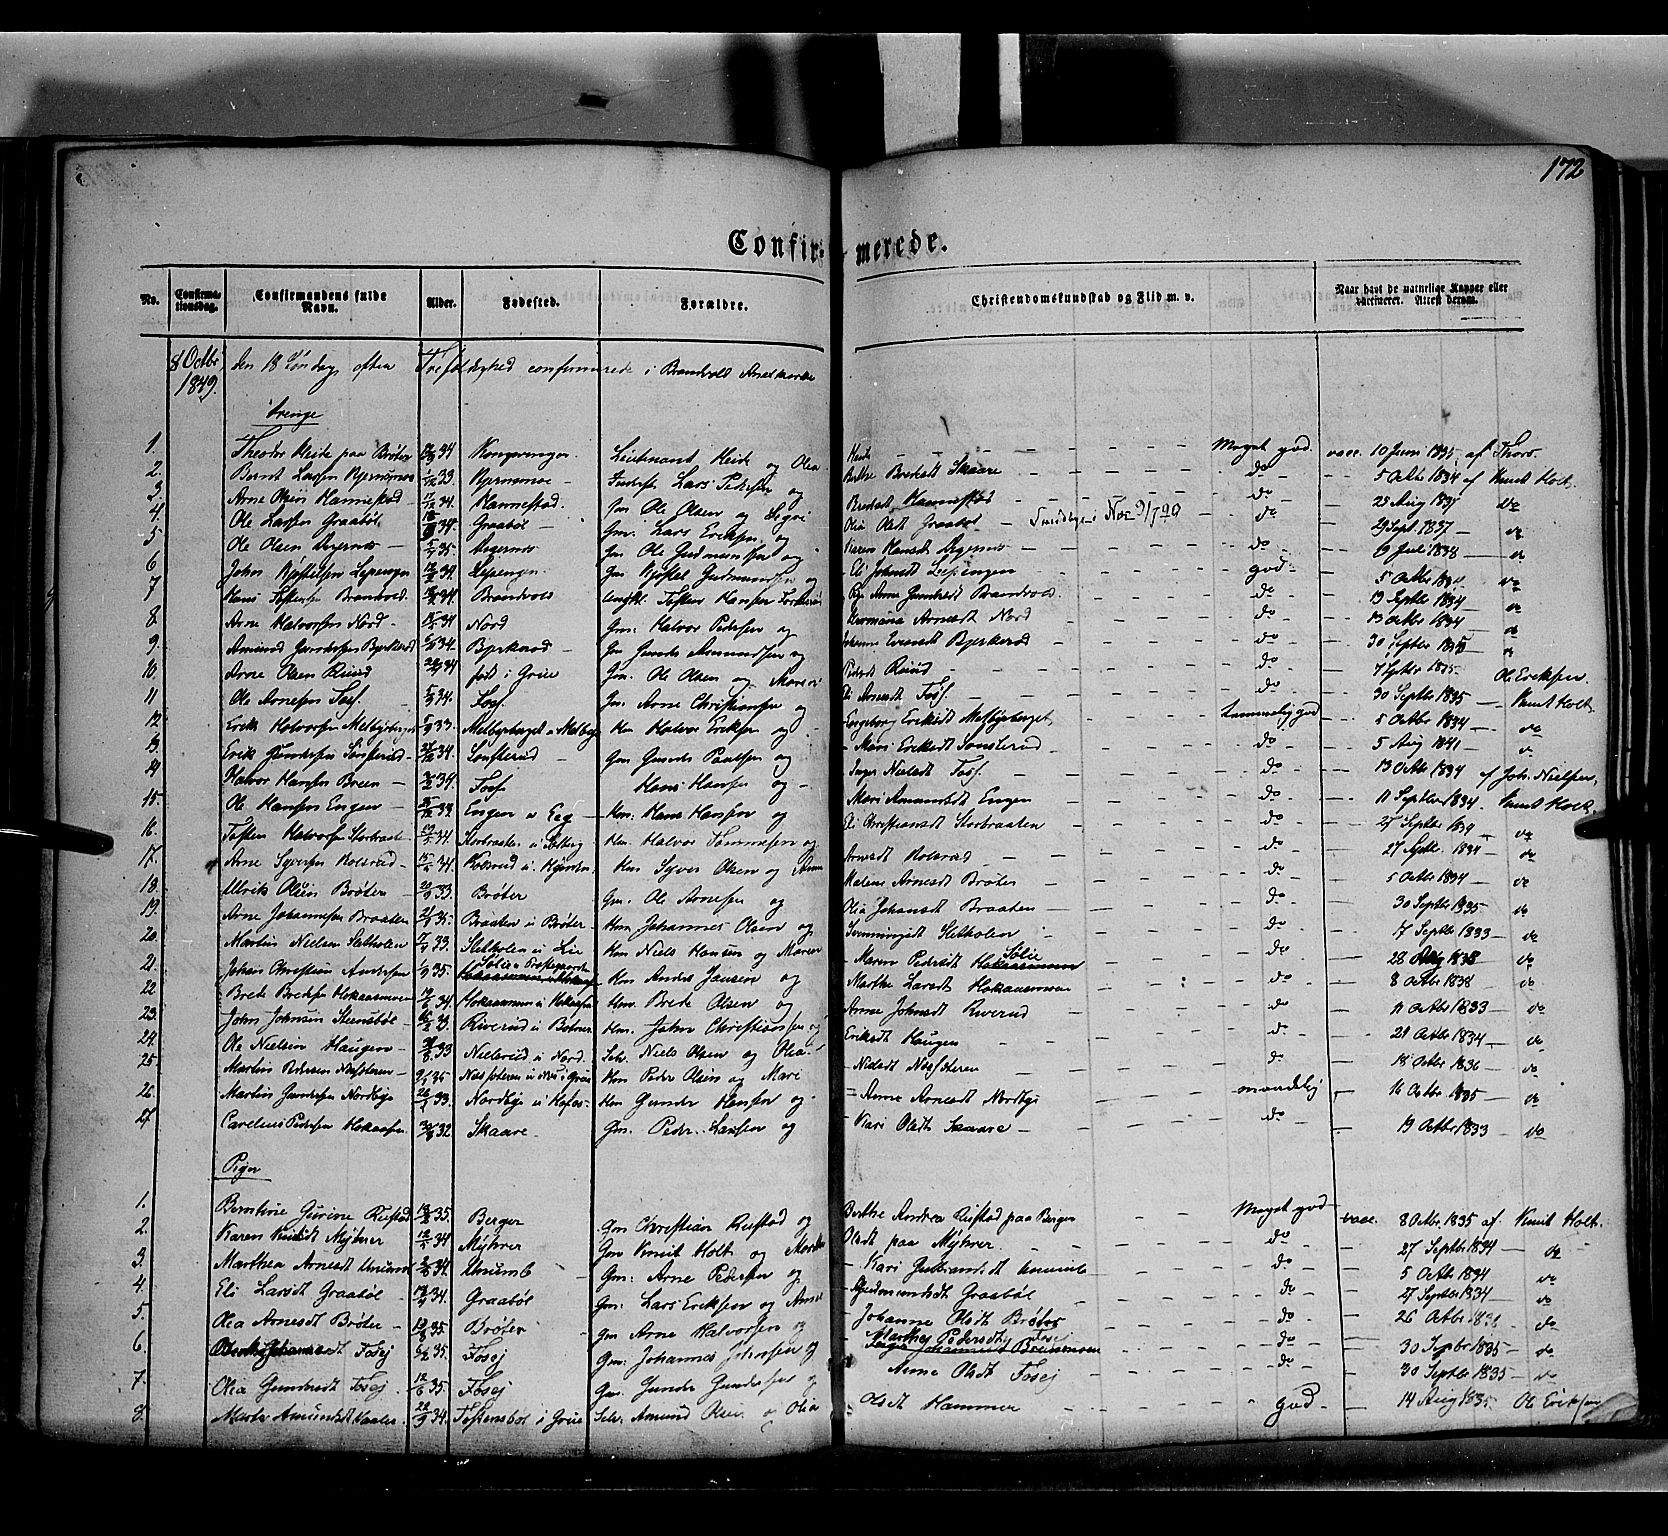 172
Confirmerede.
No. Confirmationsdag. Confirmandens fulde Navn. Alder. Fødested. Forældre. Christendomskundskab og Flid m. v. Naar havt de naturlige Kopper eller vaccineret. Attest derom.
8 Octbr 1849. den 18 Søndag efter Trefoldighed confirmerede i Brandvold Kirke
Drenge
1. Theodor Heide paa Brøter 34 Kongsvinger Lieutenant Heide og Olea Heide Meget god vacc. 10 Juni 1835 af
2. Bernt Larsen Bjernmoe 33 Bjernmoe Lars Pedersen og Berthe Bredesdt Skaare do 5 Octbr 1834 af Knut Holt
3. Arne Olsen Hannestad 34. Hannestad Ole Olsen og Bredesdt Hannestad do 25 Aug 1837 do
4. Ole Larsen Graabøl 34 Graabøl Gm. Lars Eriksen og Olia Olsdt Graabøl do 29 Sept. 1837 do
5. Ole Olsen Agernæs 35 Agernæs Gm. Ole Gudmundsen og Karen Hansdt Agernæs do 9 Juli 1838 do
6. John Kjøstelsen Lepengen 34 Lepengen Gm Kjøstel Gudmundsen og Eli Johnsdt Lepengen god 5 Octbr 1834 do
7. Hans Tostensen Brandvold 34 Brandvold Tosten Hansen Anne Gundersdt Brandvold do 19 Septbr 1834 do
8. Arne Halvorsen Nord 34 Nord Gm: Halvor Pedersen og Germana Arnesdt Nord do 13 Octbr 1834 do
9. Amund Gundersen Bjerkerud 34. Bjerkerud Gm Gunder Amundsen og Johanne Evensdt Bjerkerud do 30 Septbr
10. Arne Olsen Ruud 34 født i Grue Gm. Ole Olsen og Maren Pedersdt Ruud do 7 Septbr 1835 Ole Eriksen
11. Ole Arnesen Fosf. 34. Fosf. Gm. Arne Christiansen og Eli Arnesdt Fosf. do 30 Septbr 1835 Knut Holt
12. Erik Halvorsen Melbyberget 33. Melbyberget u Melby Hm Halvor Eriksen og Ingeborg Eriksdt Melbyberget temmelig god 5 Octbr 1834 do
13. Erik Gundersen Sønsterud 34. Sønsterud Gm Gunder Paulsen og Mari Eriksdt Sønsterud do 5 Aug 1841 do
14 Halvor Hansen Breen 34 Fosf Hans Hansen og Inger Nielsdt Fosf. do 13 Octbr 1834 af Joh. Nielsen
15. Ole Hansen Engen 34 Engen u Eeg Hm: Hans Hansen og Mari Amundsdt Engen do 11 Septbr 1834. Knut Holt
16. Tosten Halvorsen Storbraaten 34. Storbraaten u Solberg Hm Halvor Tommesen og Eli Christiansdt Storbraaten do 27 Septbr 1834 do
17. Arne Syversen Kolsrud 34. Kolsrud u Hm Syver Olsen og Anne Arnesdt Kolsrud do 27 Septbr 1834 do
18. Ulrik Olsen Brøter 33. Brøter Gm. Ole Arnesen og Malene Arnesdt Brøter do 5 Octbr 1834 do
19. Arne Johannesen Braaten 35. Braaten u Brøter Hm Johannes Olsen og Olia Johansdt Braaten do 30 Septbr 1835 do
20. Martin Nielsen Sletholen 33. Sletholen u Lie Hm Niels Hansen og Maren Svenningsdt Sletholen do 7 Septbr 1833 do
21. Johan Christian Andersen 35. Sølie u Præstegaarden Hm Anders Jansen og Maren Pedersdt Hokaasmoen Sølie do 28 Aug 1838 do
22 Brede Bredesen Hokaasmoen 34. Hokaasmoen u Hokaasen Hm Brede Olsen og Marthe Larsdt Hokaasmoen do 8 Octbr 1838 do
23. John Johnsen Steensbøl 33. Riverud u Bolner Hm. John Christiansen og Anne Johnsdt Riverud do 11 Octbr 1833 do
24. Ole Nielsen Haugen 33 Nielsrud u Nord. Selv. Niels Olsen og Olia Eriksdt Haugen do 21 Octbr 1834 do
25. Martin Pedersen Næsseteren 35 Næsseteren u Næs i Grue Hm Peder Olsen og Mari Nielsdt Næsseteren do 18 Octbr 1836 do
26. Martin Gundersen Nordbye 33. Nordbye u Hofos Hm Gunder Hansen og Anne Arnesdt Nordbye maadelig 16 Octbr 1835 do
27. Carelius Pedersen Hokaasen 32 Skaare Gm. Peder Larsen og Kari Olsdt Skaare do 19 Octbr 1833 do
Piger
1. Berntine Gurine Rustad 35. Berger Gm Christian Rustad og Berthe Andrea Rustad paa Berger Meget god vacc. 8 Octbr. 1835 af Knut Holt
2. Karen Knudsdt Myhrer 34 Myhrer Gm Knut Holt og Marthe Olsdt paa Myhrer do 27 Septbr 1834 do
3. Marthea Arnesdt 34. Gm: Arne Pedersen og Kari Gulbrandsdt do 5 Octbr 1834 do
4. Eli Larsdt Graabøl 34. Graabøl Gm: Lars Eriksen og Anne Gudmundsdt Graabøl do 27 Septbr 1834 do
5. Olea Arnesdt Brøter 35 Brøter Gm Arne Halvorsen og Johanne Olsdt Brøter do 26 Octbr do
6. Johannesdt Fosej 35. Fosej Gm: Johannes Johnsen og Marthe Pedersdt Fosej do 30 Septbr 1835 do
7. Olia Gundersdt Fosej 35. Fosej Gm. Gunder Gundersen og Anne Olsdt Fosej do 30 Septbr 1835 do
8. Marte Amundsdt 34. Tostensbøl i Grue Selv. Amund Olsen og Olia Olsdt Hammer god 14 Aug 1835 Ole Eriksen